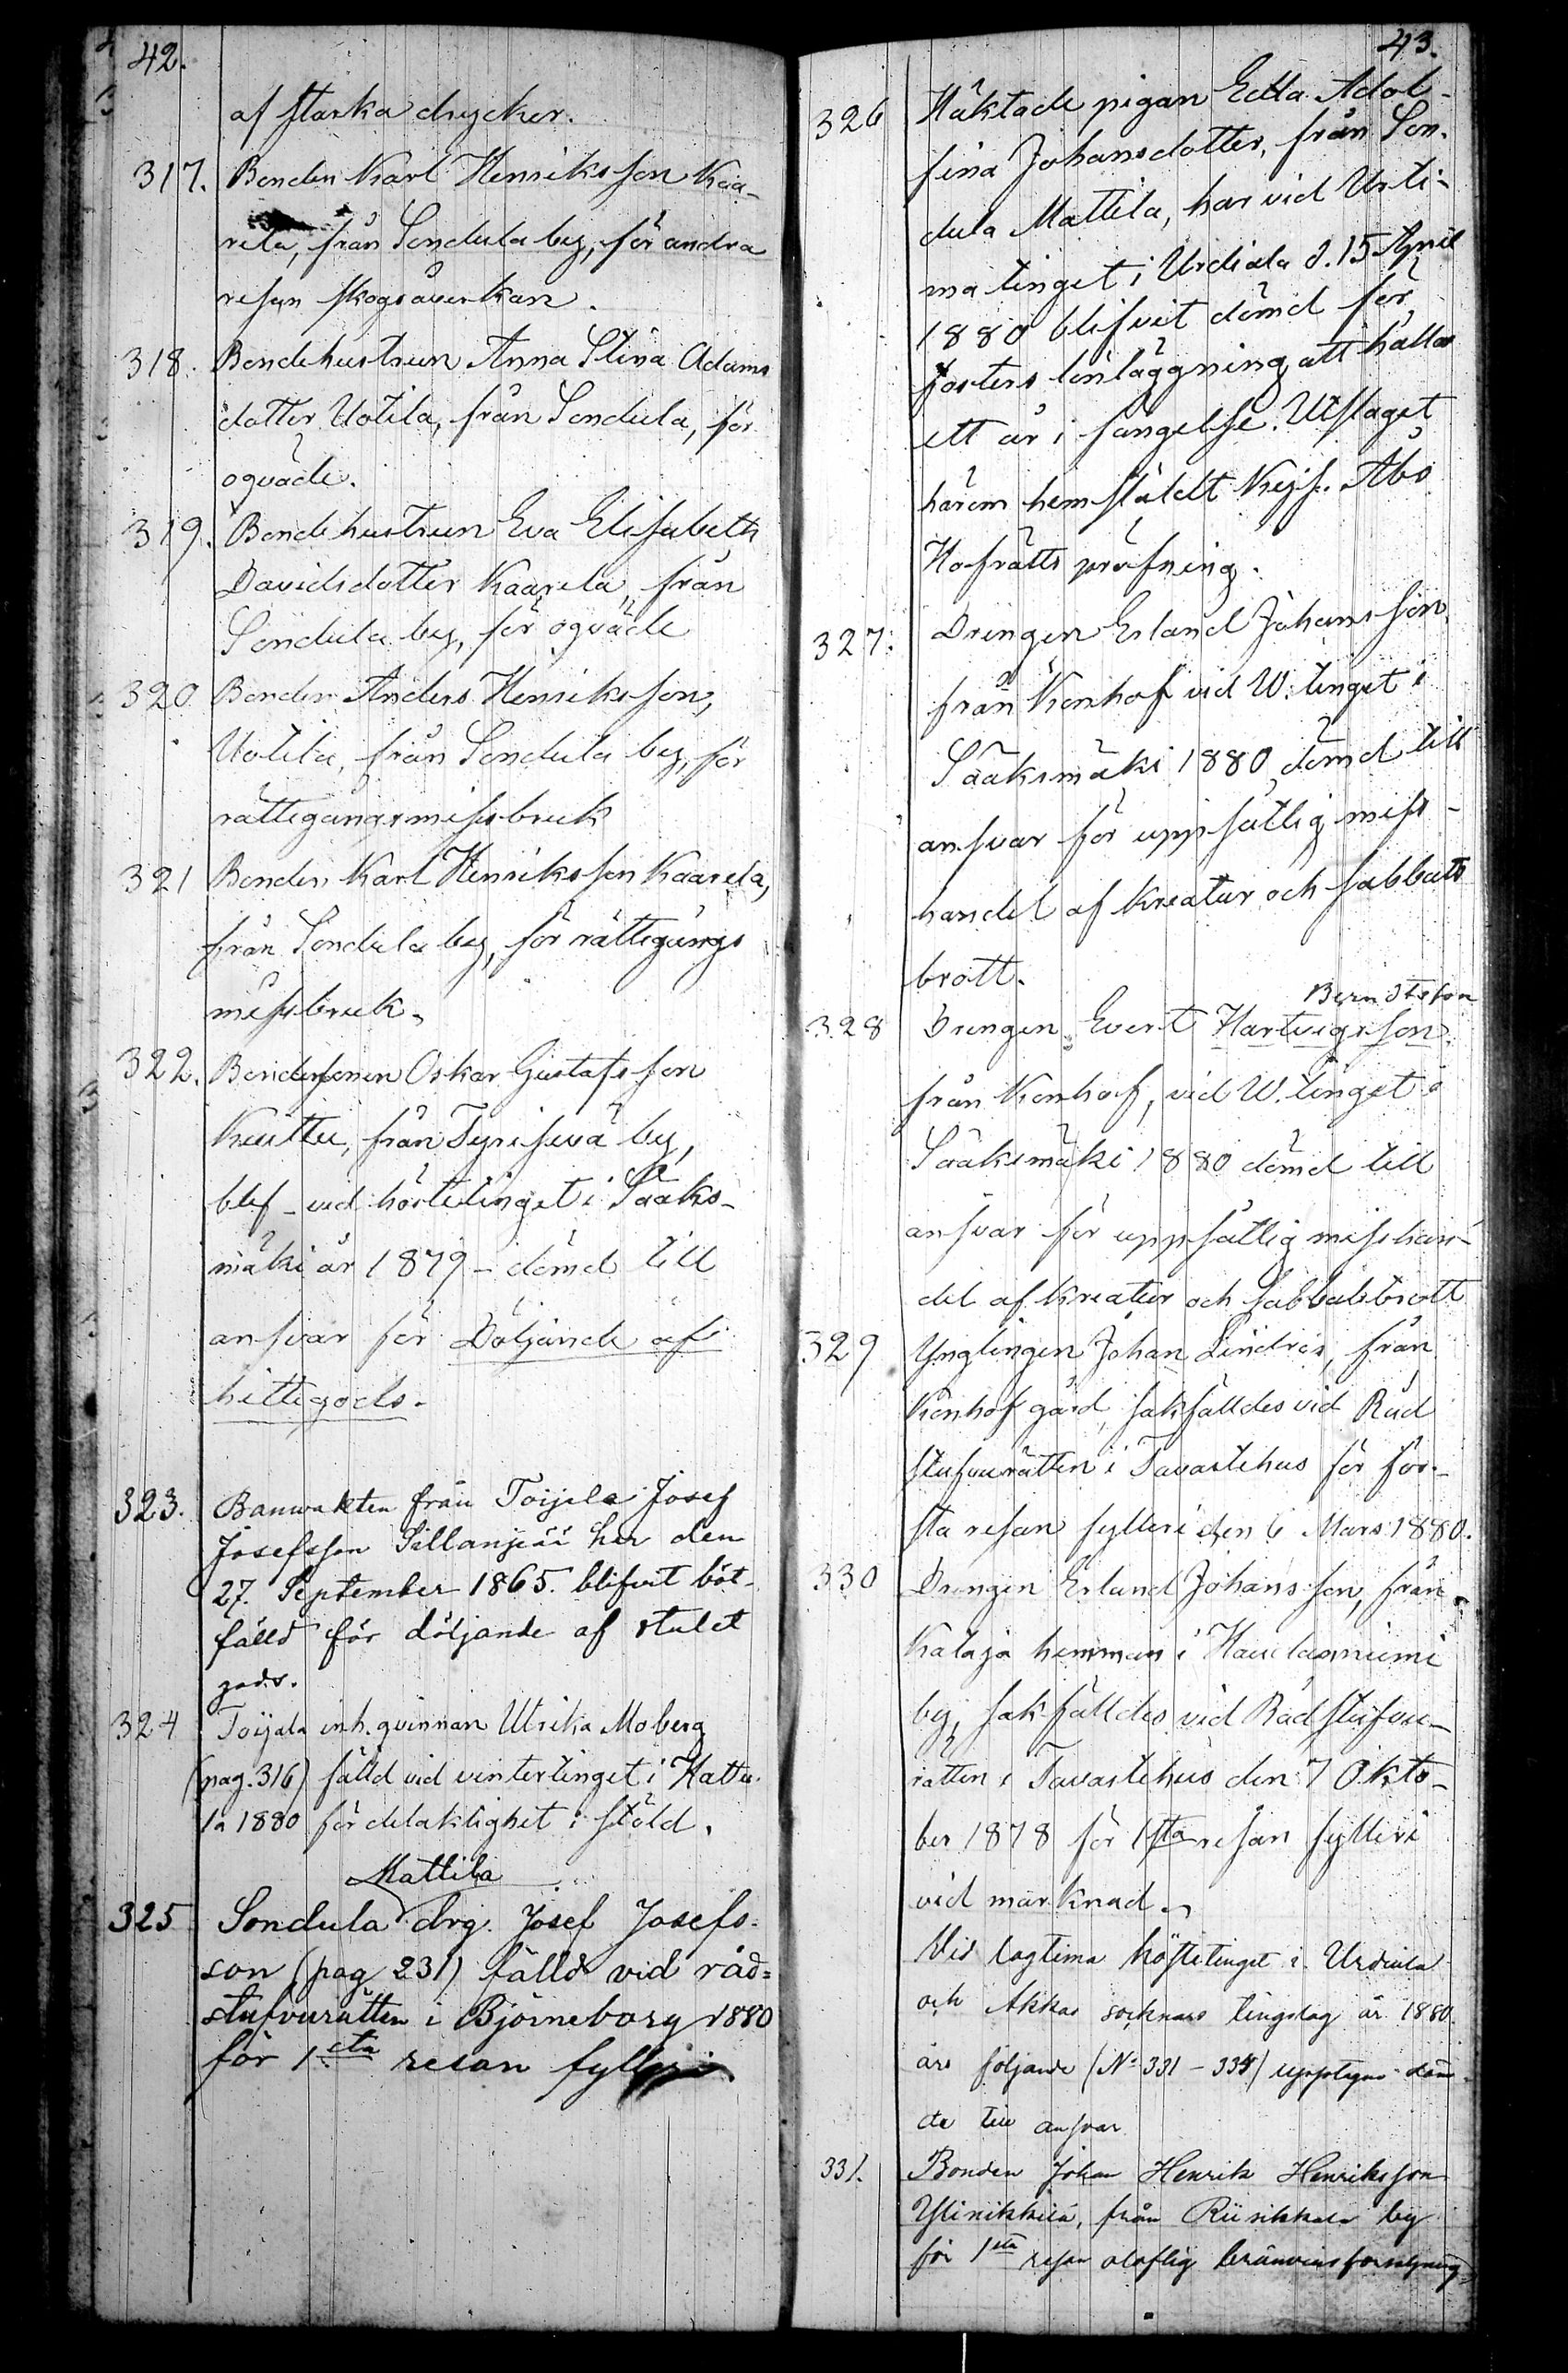 42.
af starka drycker.
317. Bonden Karl Henriksson Kaa-
rela, från Sondula by, för andra
resan skogsåverkan.
318. Bondehustrun Anna Stina Adams
dotter Uotila, från Sondula, för
oqväde.
319. Bondehustrun Eva Elisabeth
Davidsdotter Kaarela, från
Sondula by, för oqväde
320 Bonden Anders Henriksson,
Uotila, från Sondula by, för
rättegångsmissbruk
321 Bonden Karl Henriksson Kaarela,
från Sondula by, för rättegångs
missbruk.
322. Bondesonen Oskar Gustafsson
Kuittu, från Tyrisevä by,
blef - vid hösttinget i Sääks-
mäki år 1879 - dömd till
ansvar för Döljande af
hittegods.
323. Banvakten från Toijala Josef
Josefsson Sillanpää har den
27. September 1865. blifvit böt-
fälld för döljande af stulet
gods.
324 Toijala inh. qvinnan Ulrika Moberg
(pag. 316) fälld vid vintertinget i Hattu-
la 1880 för delaktighet i stöld.
Mattila
325 Sondula drg. Josef Josefs-
son (pag 231) fälld vid råd-
stufvurätten i Björneborg 1880
för 1sta resan fylleri
43.
326 Häktade pigan Edla Adol-
fina Johansdotter, från Son-
dula Mattila, har vid Urti-
ma tinget i Urdiala d. 15 April
1880 blifvit dömd för
fosters lönläggning att hållas
ett år i fängelse. Utslaget
härom hemstäldt Kejs. Åbo
Hofrätts pröfning.
327. Drengen Erland Johansson,
från Konhof vid W. tinget i
Sääksmäki 1880 dömd till
ansvar för uppsåtlig miss-
handel af kreatur och sabbats
brott.
Berndtsson
328 Drengen Evert Hartvigsson
från Konhof, vid W. tinget i
Sääksmäki 1880 dömd till
ansvar för uppsåtlig misshan-
del af kreatur och sabbatsbrott
329 Ynglingen Johan Lindros, från
Konhof gård, sakfälldes vid Råd
stufvurätten i Tavastehus för för-
sta resan fylleri den 6 Mars 1880.
330 Drengen Erland Johansson, från
Kataja hemman i Haudanniemi
by, sakfälldes vid Rådstufvu-
rätten i Tavastehus den 7 Okto-
ber 1878 för 1sta resan fylleri
vid marknad.
Vid lagtima hösttinget i Urdiala
och Akkas socknars tingslag år 1880
äro följande (No 331 - 334) upptagne döm
de till ansvar
331. Bonden Johan Henrik Henriksson
Ylinikkilä, från Riisikkala by
för 1sta resan olaflig bränvinsförsäljning